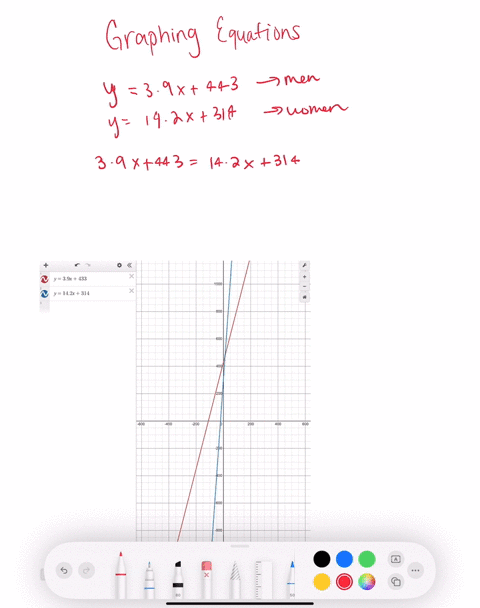 Graphing Equations
y = 3.9x + 443 → men
y = 14.2x + 314 → women
3.9x + 443 = 14.2x + 314
y = 3.9x + 433
y = 14.2x + 314
1000
800
600
400
200
-600 -400 -200 0 200 400 600
-200
-400
-600
-800